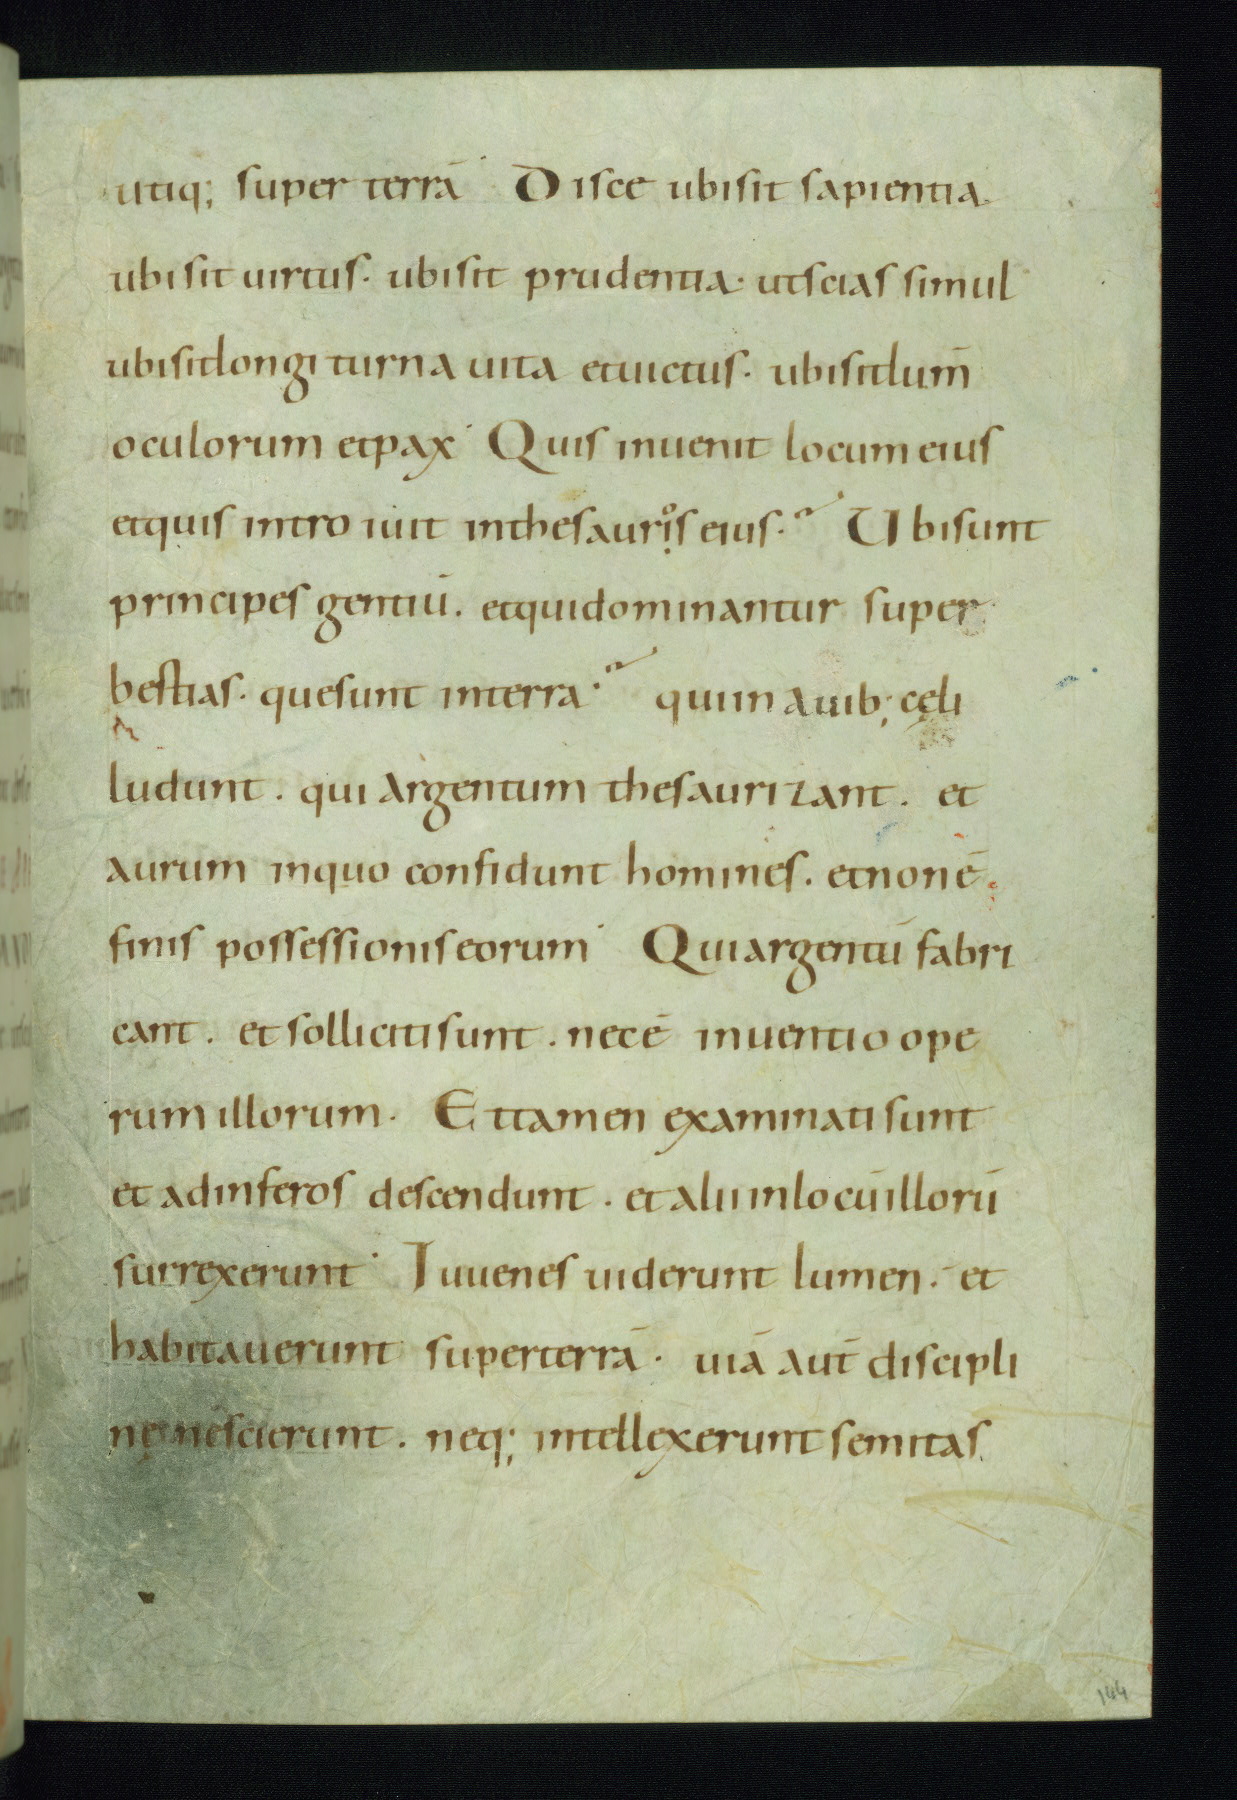 utiq; super terrā· Disce ubisit sapientia.
ubi sit uirtus. ubi sit prudentia. utscias simul
ubisitlongiturna uita etuictus. ubisitlum̄
oculorum etpax· Quis inuenit locum eius
etquis introiuit inthesauri̊s eius. Ubisunt
principes gentiū. etquidominantur super
bestias. quesunt interra. quiin auib; cęli
ludunt. qui argentum thesaurizant. et
aurum inquo confidunt homines. etnonē
finis possessioniseorum· Quiargentū fabri
cant. et sollicitisunt. necē inuentio ope
rum illorum. Ettamen examinatisunt
et adinferos descendunt. et alii inlocūillorū
surrexerunt· Iuuenes uiderunt lumen. et
habitauerunt superterrā. uiā aut̄ discipli
nę nescierunt. neq; intellexerunt semitas.
144